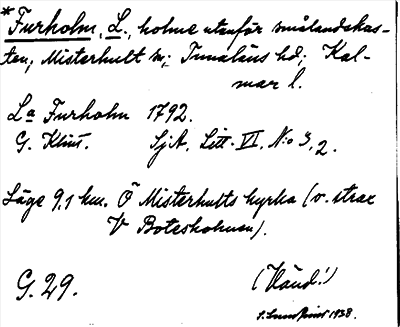 * Furholm, L., holme utanför smålandskus-
ten; Misterhult sn; Tunaläns hd; Kal-
mar l.
La Furholm 1792.
G. Klint. SjA, Litt. VI, No 3, 2.
Läge 9,1 km. Ö Misterhults kyrka (o. strax
V Botesholmen).
G. 29. (Vänd!)
1938.